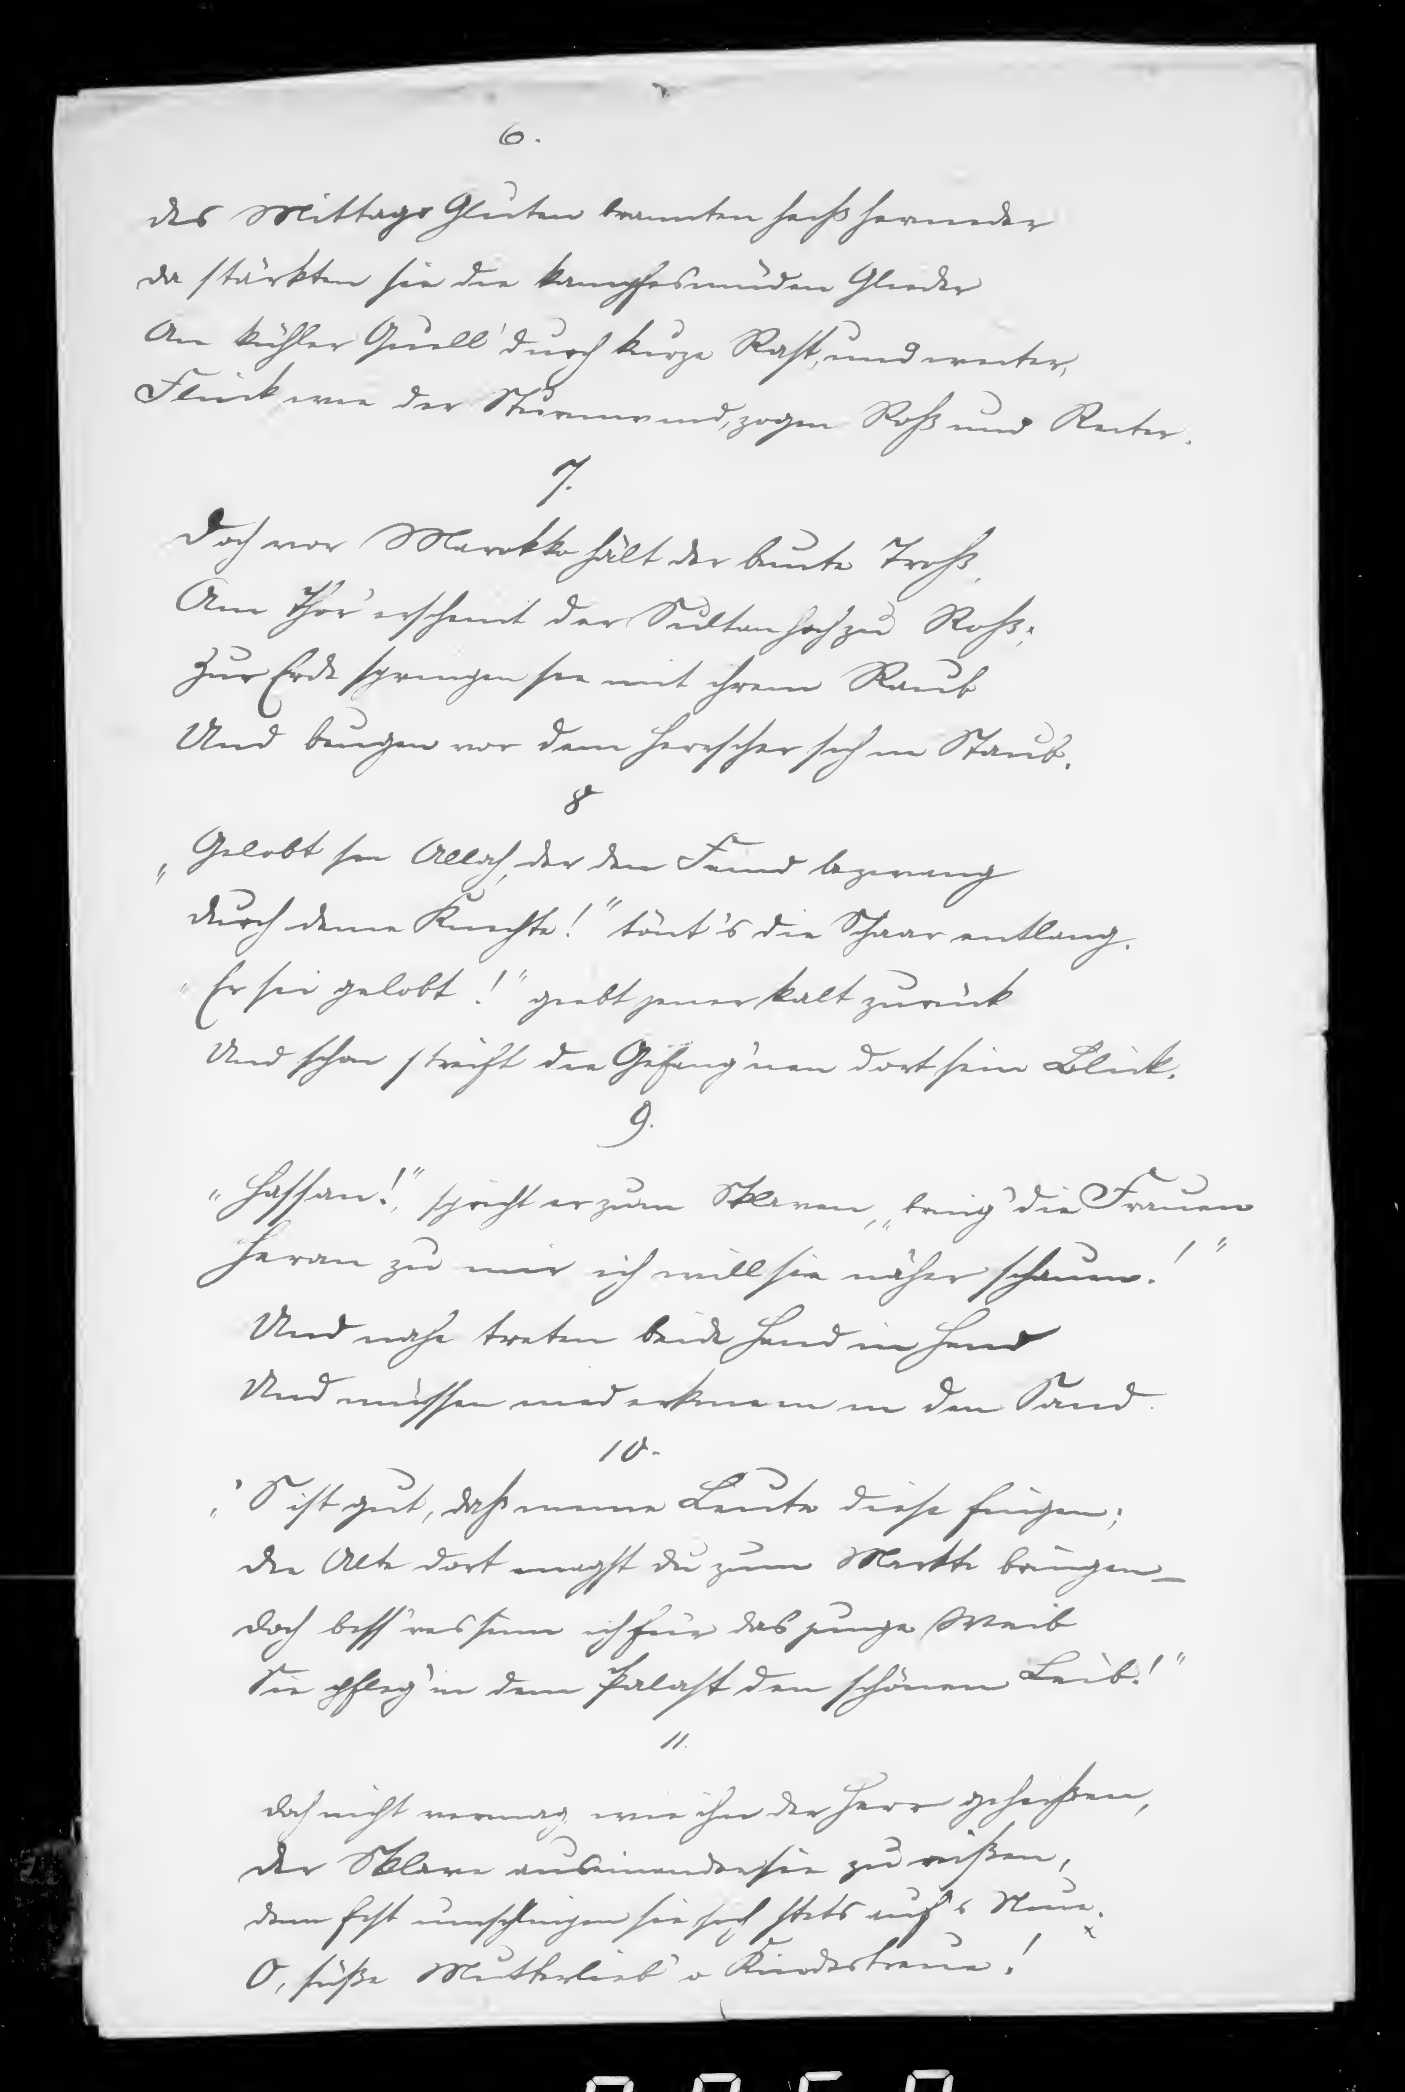 6.
des Mittags Gluten brannten heiß hernieder
da stärkten sie die kampfesmüden Glieder
An kühler Quell' durch kurze Rast, und weiter,
Flink, wie der Sturmwind, zogen Roß und Reiter.
7.
Doch vor Marokko hält der bunte Troß,
Am Thor' erscheint der Sultan hoch zu Roß;
Zur Erde springen sie mit ihrem Raub
Und beugen vor dem Herrscher sich in Staub.
8
„Gelobt sei Allah, der den Feind bezwang
durch deine Knechte!" tönt's die Schaar entlang.
„Er sei gelobt!" giebt jener kalt zurück
Und schon streift die Gefang'nen dort sein Blick.
9.
„Hassan!", spricht er zum Sklaven, „bring' die Frauen
Heran zu mir ich will sie näher schauen!"
Und nahe treten beide Hand in Hand
Und müssen niederknieen in den Sand.
10.
„'S ist gut, daß meine Leute diese fingen;
die Alte dort magst du zum Markte bringen_
doch bess'res sinn ich für das junge Weib
Sie pfleg' in dem Palast den schönen Leib!"
11.
doch nicht vermag, wie ihn der Herr geheißen,
der Sklave auseinander sie zu reißen,
denn fest umschlingen sie sich stets auf's Neue.
O, süße Mutterlieb' o Kindestreue!